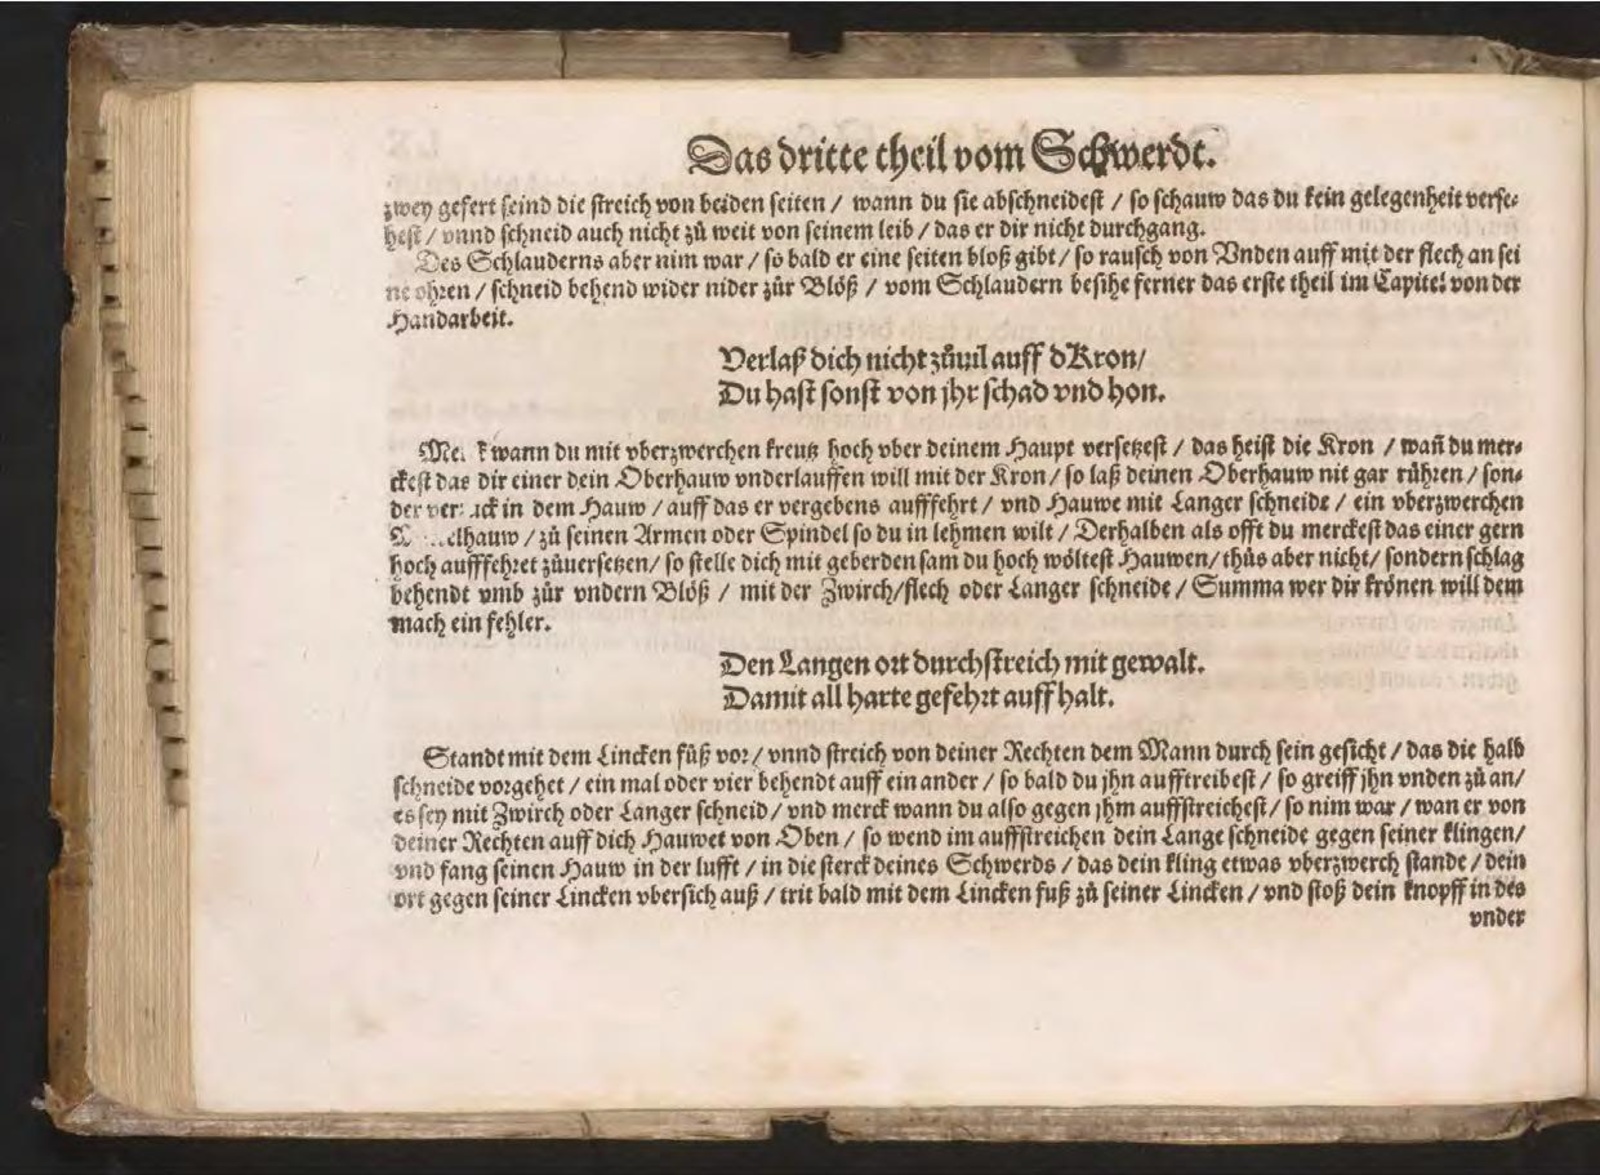 Das dritte theil vom Schwerdt.
zwey gefert seind die streich von beiden seiten / wann du sie abschneidest / so schauw das du kein gelegenheit verse⸗
hest / vnnd schneid auch nicht zů weit von seinem leib / das er dir nicht durchgang.
Des Schlauderns aber nim war / so bald er eine seiten bloß gibt / so rausch von Vnden auff mit der flech an sei
ne ohren / schneid behend wider nider zůr Blöß / vom Schlaudern besihe ferner das erste theil im Capitel von der
Handarbeit.
Verlaß dich nicht zůuil auff dKron/
Du hast sonst von jhr schad vnd hon.
wann du mit vberzwerchen kreutz hoch vber deinem Haupt versetzest / das heist die Kron / wañ du mer⸗
ckest das dir einer dein Oberhauw vnderlauffen will mit der Kron / so laß deinen Oberhauw nit gar rühren / son⸗
der in dem Hauw / auff das er vergebens aufffehrt / vnd Hauwe mit Langer schneide / ein vberzwerchen
/ zů seinen Armen oder Spindel so du in lehmen wilt / Derhalben als offt du merckest das einer gern
hoch aufffehret zůuersetzen / so stelle dich mit geberden sam du hoch wöltest Hauwen / thůs aber nicht / sondern schlag
behendt vmb zůr vndern Blöß / mit der Zwirch / flech oder Langer schneide / Summa wer dir krönen will dem
mach ein fehler.
Den Langen ort durchstreich mit gewalt.
Damit all harte gefehrt auffhalt.
Standt mit dem Lincken fůß vor / vnnd streich von deiner Rechten dem Mann durch sein gesicht / das die halb
schneide vorgehet / ein mal oder vier behendt auff ein ander / so bald du jhn aufftreibest / so greiff jhn vnden zů an /
es sey mit Zwirch oder Langer schneid / vnd merck wann du also gegen jhm auffstreichest / so nim war / wan er von
deiner Rechten auff dich Hauwet von Oben / so wend im auffstreichen dein Lange schneide gegen seiner klingen /
vnd fang seinen Hauw in der lufft / in die sterck deines Schwerds / das dein kling etwas vberzwerch stande / dein
ort gegen seiner Lincken vbersich auß / trit bald mit dem Lincken fuß zů seiner Lincken / vnd stoß dein knopff in des
vnder